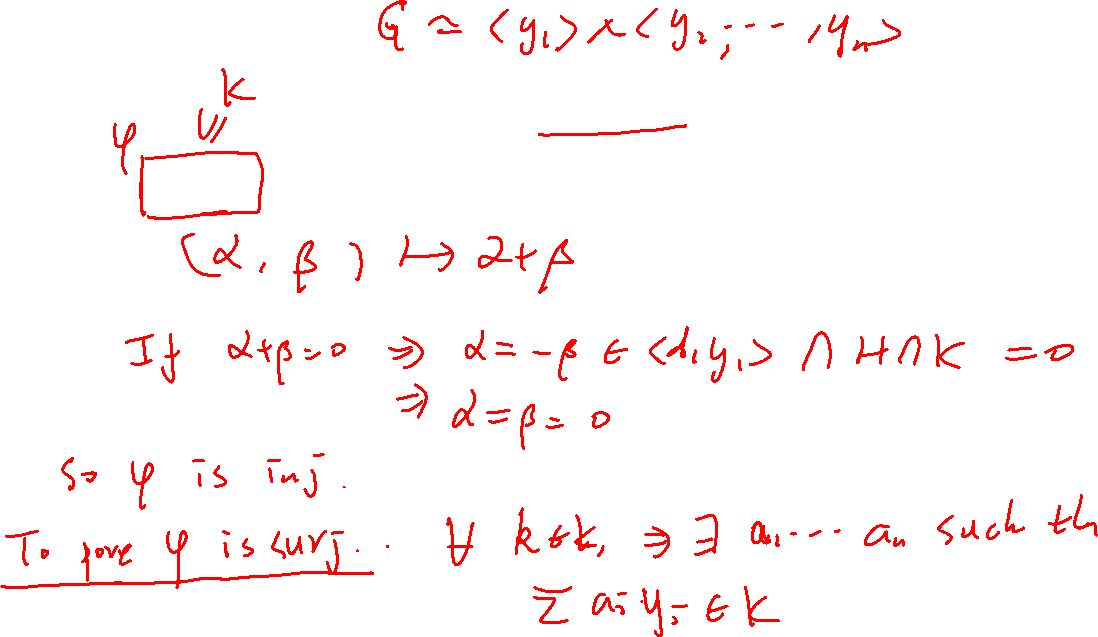 G ≃ <y₁> × <y₂, ⋯, yₙ>
K
φ
(α, β) ↦ α+β
If α+β=0 ⇒ α=-β ∈ <d₁y₁> ∩ H∩K = 0
⇒ α=β=0
So φ is inj.
To prove φ is surj. . ∀ k∈K, ⇒ ∃ a₁⋯ aₙ such th
Σ aᵢyᵢ ∈ K